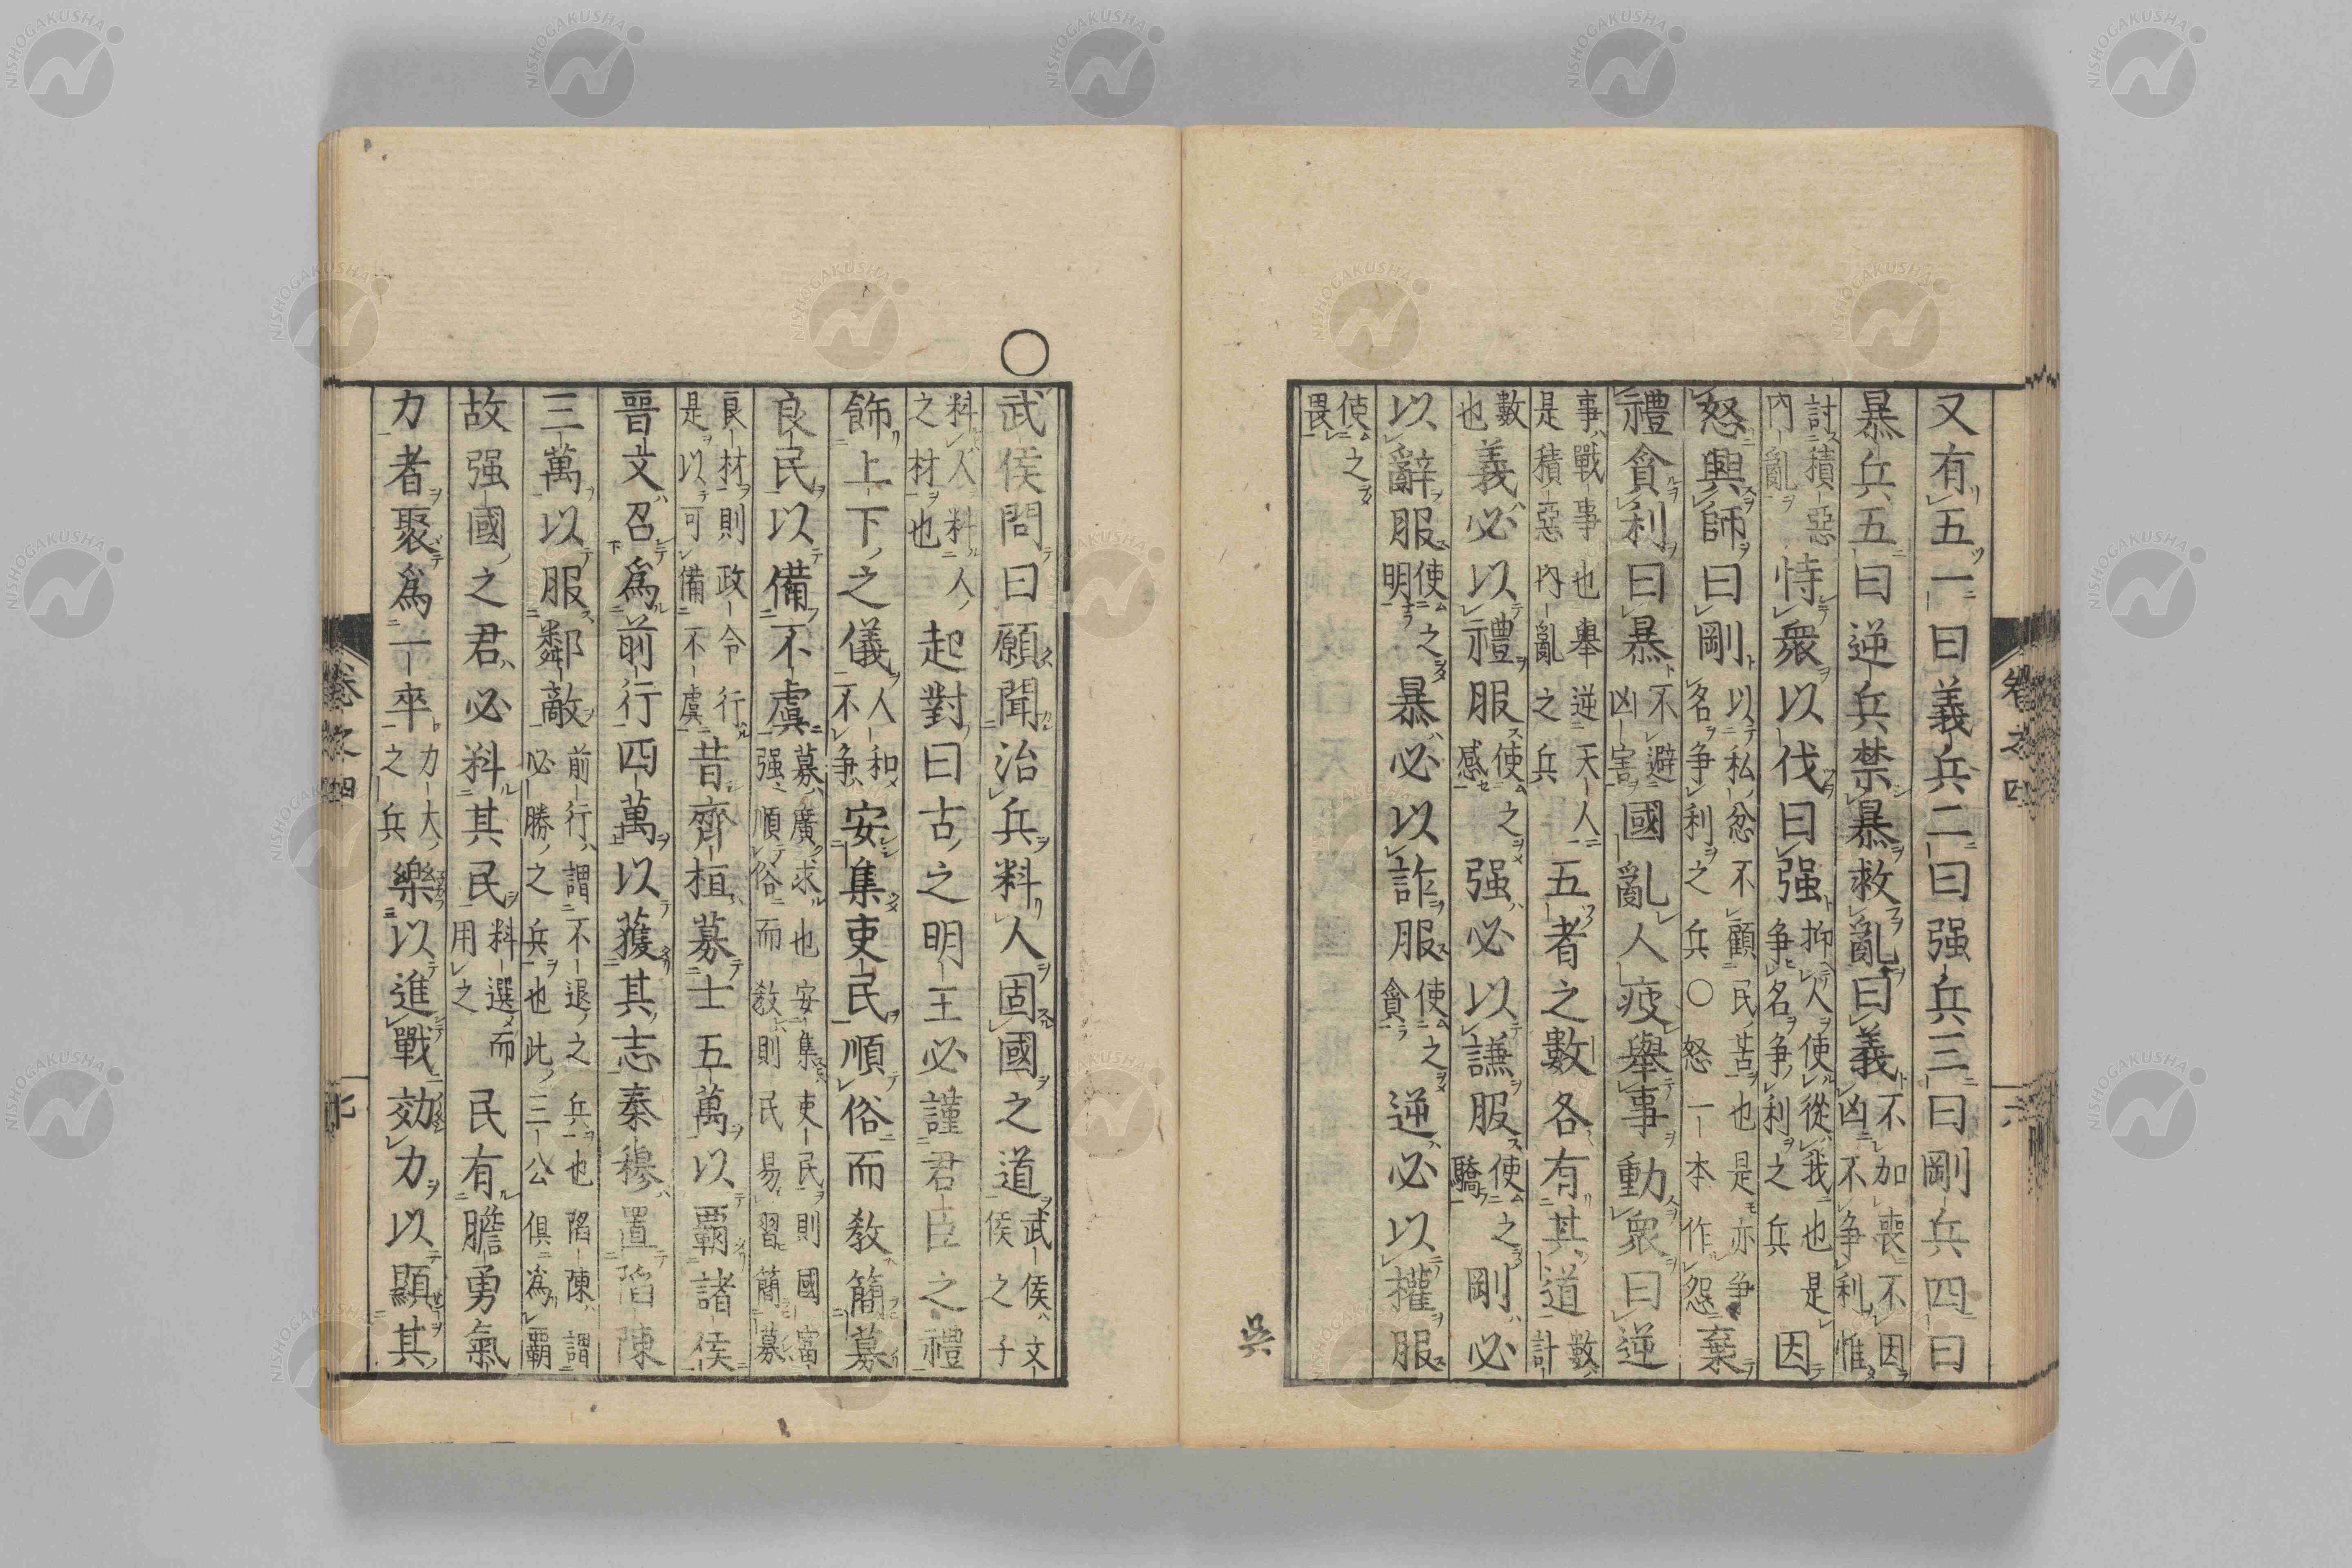 卷之四
六
又有五一曰義兵二曰强兵三曰剛兵四曰
暴兵五曰逆兵禁暴救亂曰義不加喪不因凶不争利惟
討積惡内亂恃衆以伐曰强抑人使從我也是争名争利之兵因
怒興師曰剛以私忿不顧民苦也是亦争名争利之兵〇怒一本作怨棄
禮貪利曰暴不避凶害國亂人疲舉事動衆曰逆
事戰事也舉逆天人是積惡内亂之兵五者之數各有其道數計
數也義必以禮服使之感强必以謙服使之驕剛必
以辭服使之明暴必以詐服使之貪逆必以權服
使之畏
吳
〇
武侯問曰願聞治兵料人固國之道武侯文侯之子
料人料人之材也起對曰古之明王必謹君臣之禮
飾上下之儀人和不争安集吏民順俗而教簡募
良民以備不虞募廣求也安集吏民則國富强順俗而教則民易習簡募
良材則政令行是以可備不虞昔齊桓募士五萬以霸諸侯
晉文召爲前行四萬以獲其志秦穆置陷陳
三萬以服鄰敵前行謂不退之兵也陷陳謂必勝之兵也此三公俱爲霸
故强國之君必料其民料選而用之民有膽勇氣
力者聚爲一卒力大之兵樂以進戰効力以顯其
卷之四
七